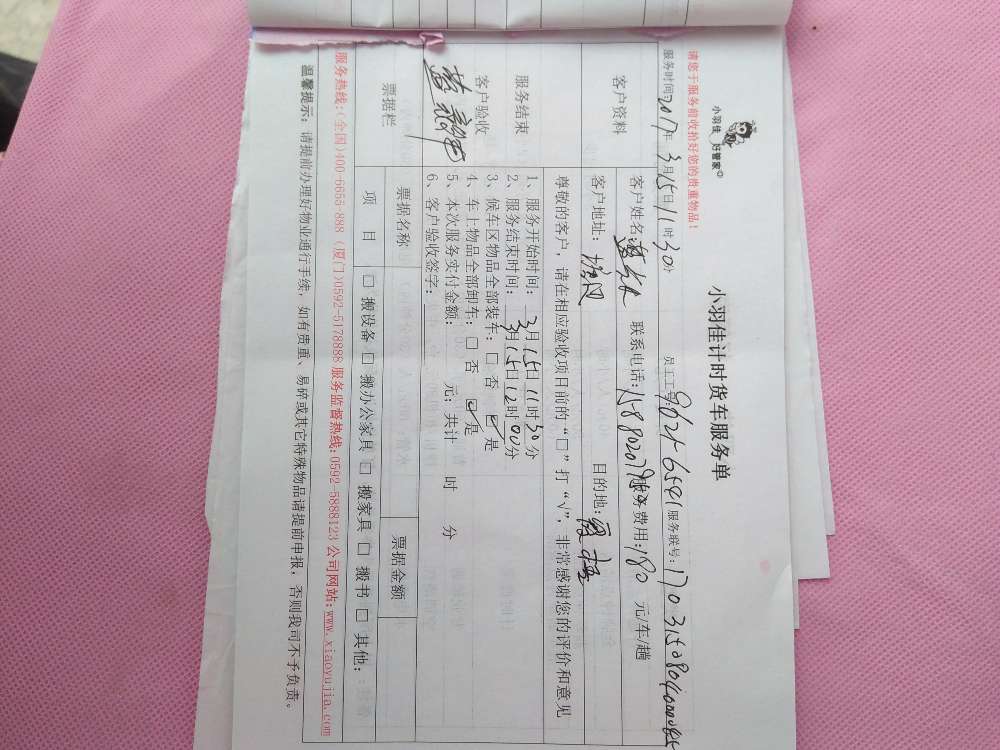 小羽佳 好管家
小羽佳计时货车服务单
请您于服务前收拾好您的贵重物品!
服务时间:2017年3月15日11时30分 员工工号: 服务联号:
客户资料
客户姓名: 联系电话: 服务费用:180 元/车/趟
客户地址: 目的地:
尊敬的客户,请在相应验收项目前的“□”打“√”,非常感谢您的评价和意见
服务结束
客户验收
1、服务开始时间: 3月15日11时30分
2、服务结束时间: 3月15日12时00分
3、候车区物品全部装车:□ 否 ☑ 是
4、车上物品全部卸车:□ 否 ☑ 是
5、本次服务实付金额: 元;共计 时 分
6、客户验收签字:
票据栏
票据名称 票据金额
项 目 □ 搬设备 □ 搬办公家具 □ 搬家具 □ 搬书 □ 其他:
服务热线:(全国)400-6655-888 (厦门)0592-5178888 服务监督热线:0592-5888123 公司网站:www.xiaoyujia.com
温馨提示:请提前办理好物业通行手续,如有贵重、易碎或其它特殊物品请提前申报,否则我司不予负责。